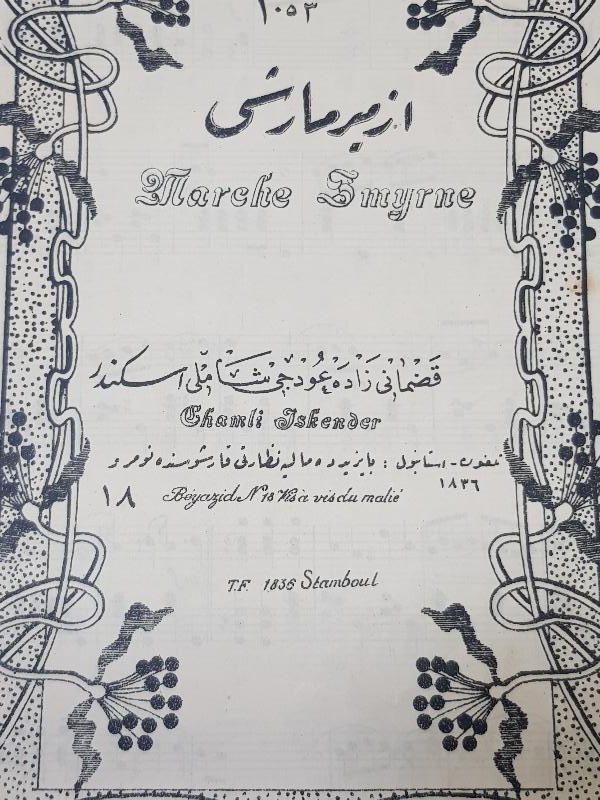 ١٠٥٣
ازمیر مارشی
Marche Smyrne
قضمانی زاده عودجی شاملی اسکندر
Chamli Iskender
تلفون - استانبول : بایزیدده مالیه نظارتی قارشوسنده نومرو
١٨٣٦
١٨
Beyazid N 18 Vis à vis du malié
T.F. 1836 Stamboul